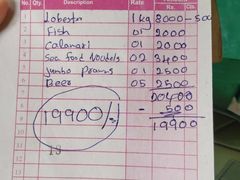 No. Qty. Description Rate Rs. Cts.
1 Lobester 1kg 8000 - 500
2 Fish 01 2000
3 Calamari 01 2000
4 Sea food Noodels 02 2400
5 Jumbo prawns 01 2500
6 Beer 05 2500
7 20400
8 - 500
9 19900/= 19900
10
11